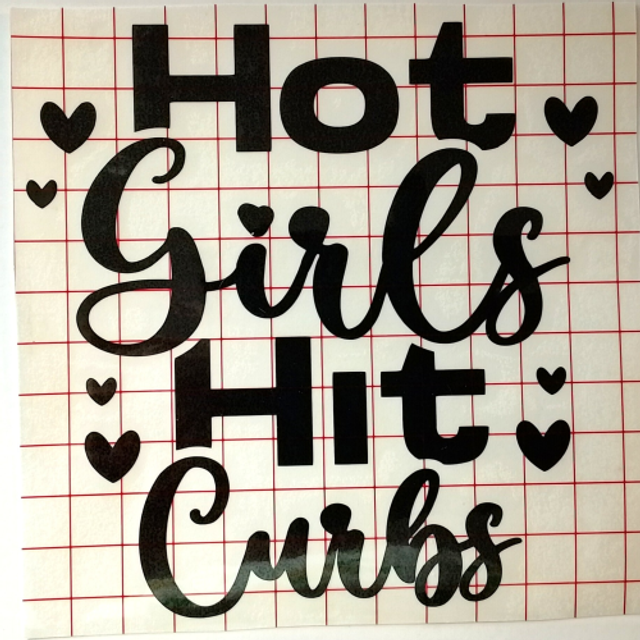 Hot
Girls
Hit
Curbs